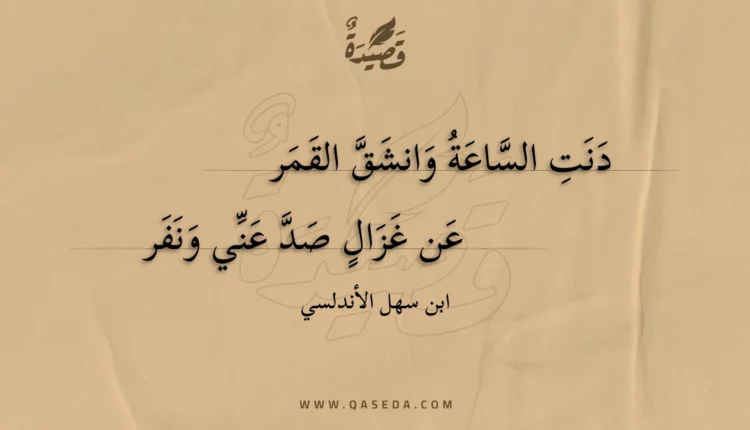 قَصِيدَةٌ
دَنَتِ السَّاعَةُ وَانشَقَّ القَمَر
عَن غَزَالٍ صَدَّ عَنِّي وَنَفَر
ابن سهل الأندلسي
WWW.QASEDA.COM